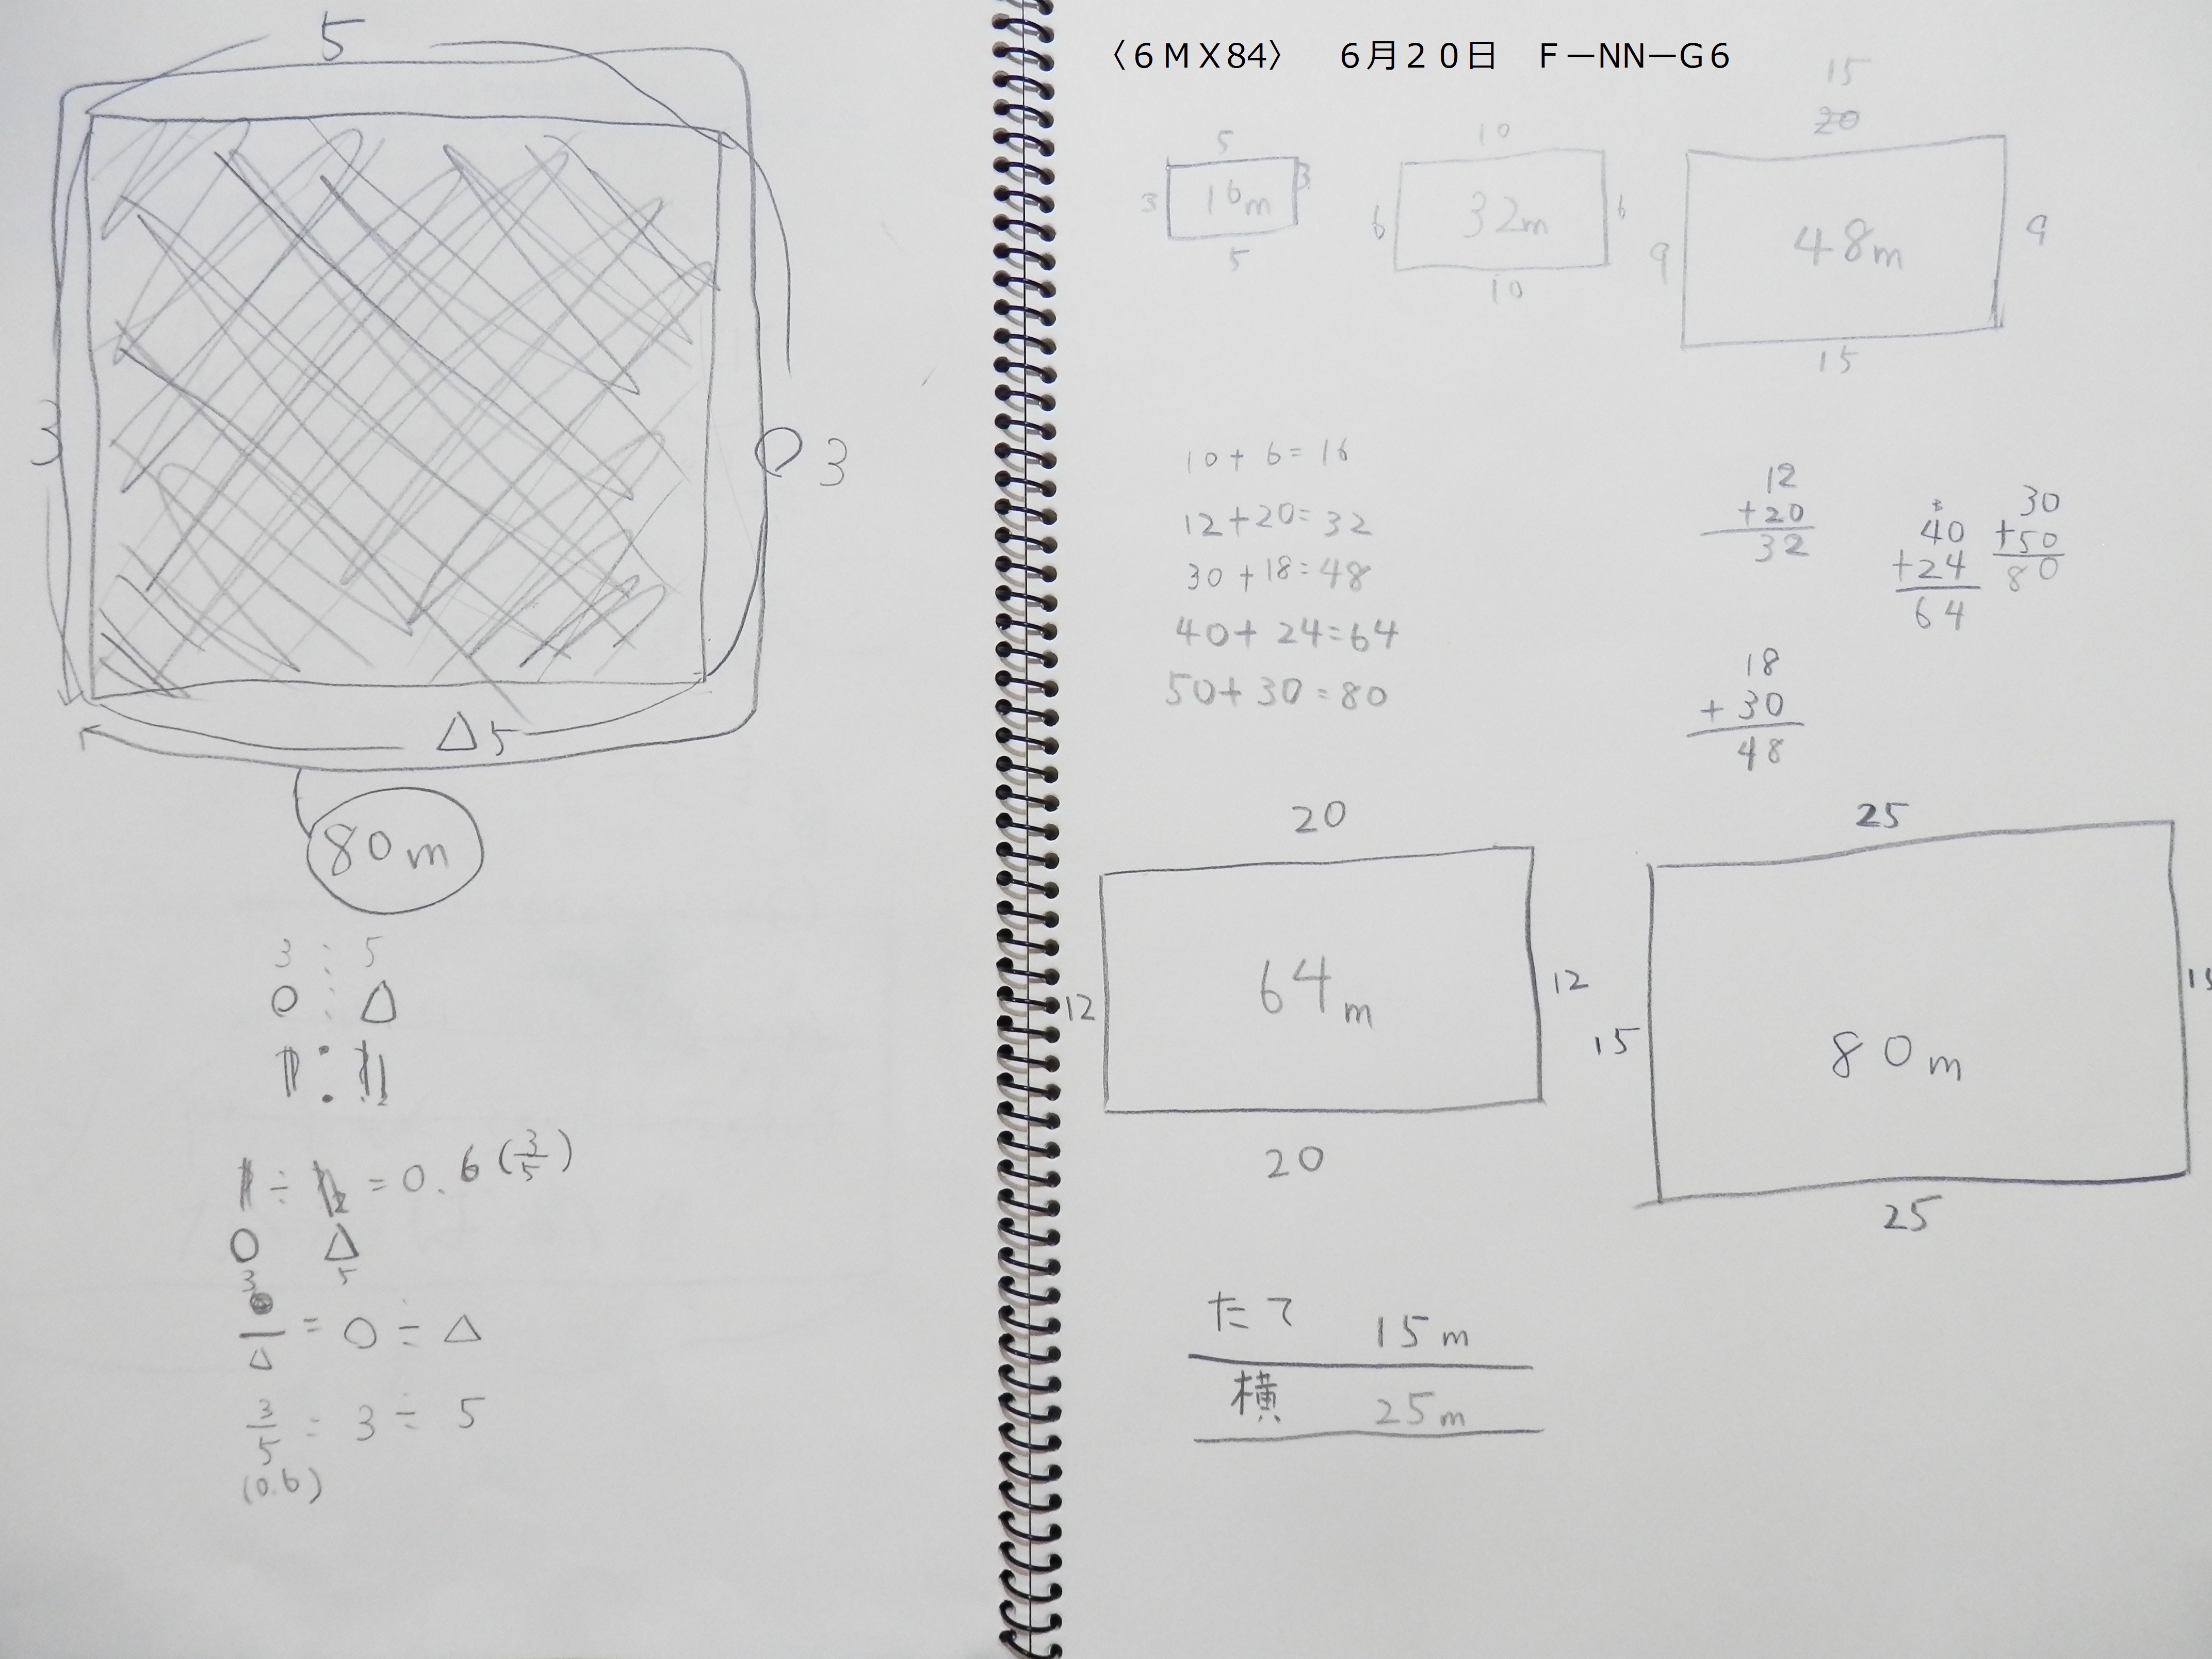 5
3
○ 3
△ 5
80m
3 : 5
○ : △
÷ = 0.6 (3/5)
○ △
3 5
/△ = ○ ÷ △
3/5 = 3 ÷ 5
(0.6)
〈6MX84〉 6月20日 F－NN－G6
5
3 16m 3
5
10
6 32m 6
10
15
20
9 48m 9
15
10 + 6 = 16
12 + 20 = 32
30 + 18 = 48
40 + 24 = 64
50 + 30 = 80
12
+20
32
40
+24
64
30
+50
80
18
+30
48
20
12 64m 12
20
25
15 80m 15
25
たて 15m
横 25m